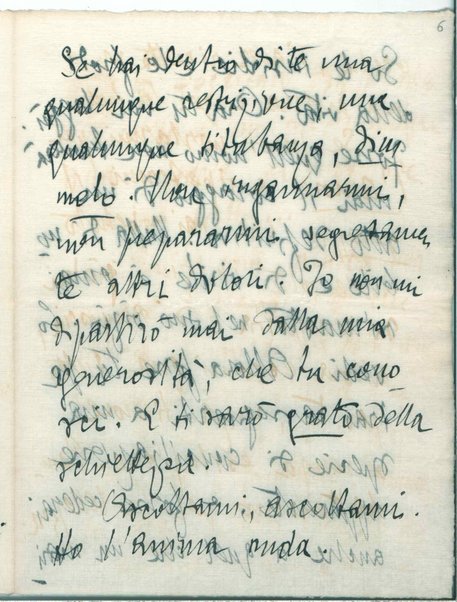 6
Se hai dentro di te una
qualunque restrizione, una
qualunque titubanza, dim
melo. Non ingannarmi,
non prepararmi segretamen
te altri dolori. Io non mi
dipartirò mai dalla mia
generosità, che tu cono
sci. E ti sarò grato della
schiettezza.
Ascoltami, ascoltami.
Ho l'anima nuda.